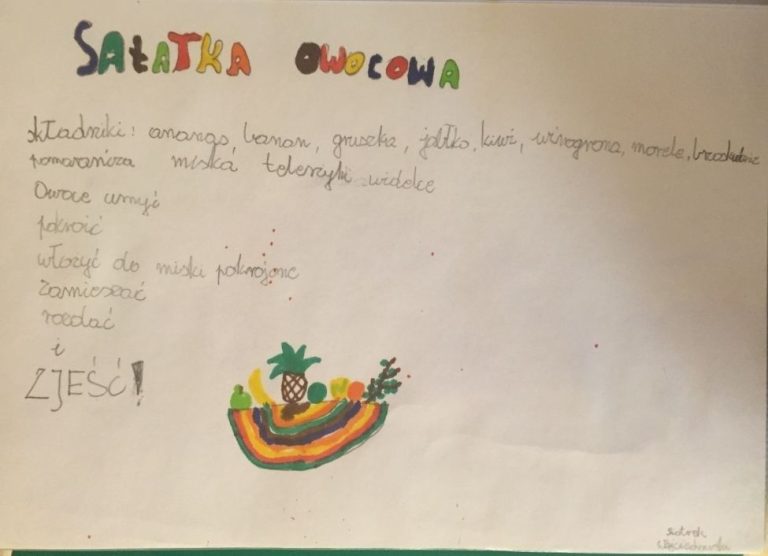 SAŁATKA OWOCOWA
składniki: ananas, banan, gruszka, jabłko, kiwi, winogrona, morele, brzoskwinie
pomarańcza miska telerzyki widelce
Owoce umyć
pokroić
włorzyć do miski pokrojone
Zamieszać
rozdać
i
ZJEŚĆ!